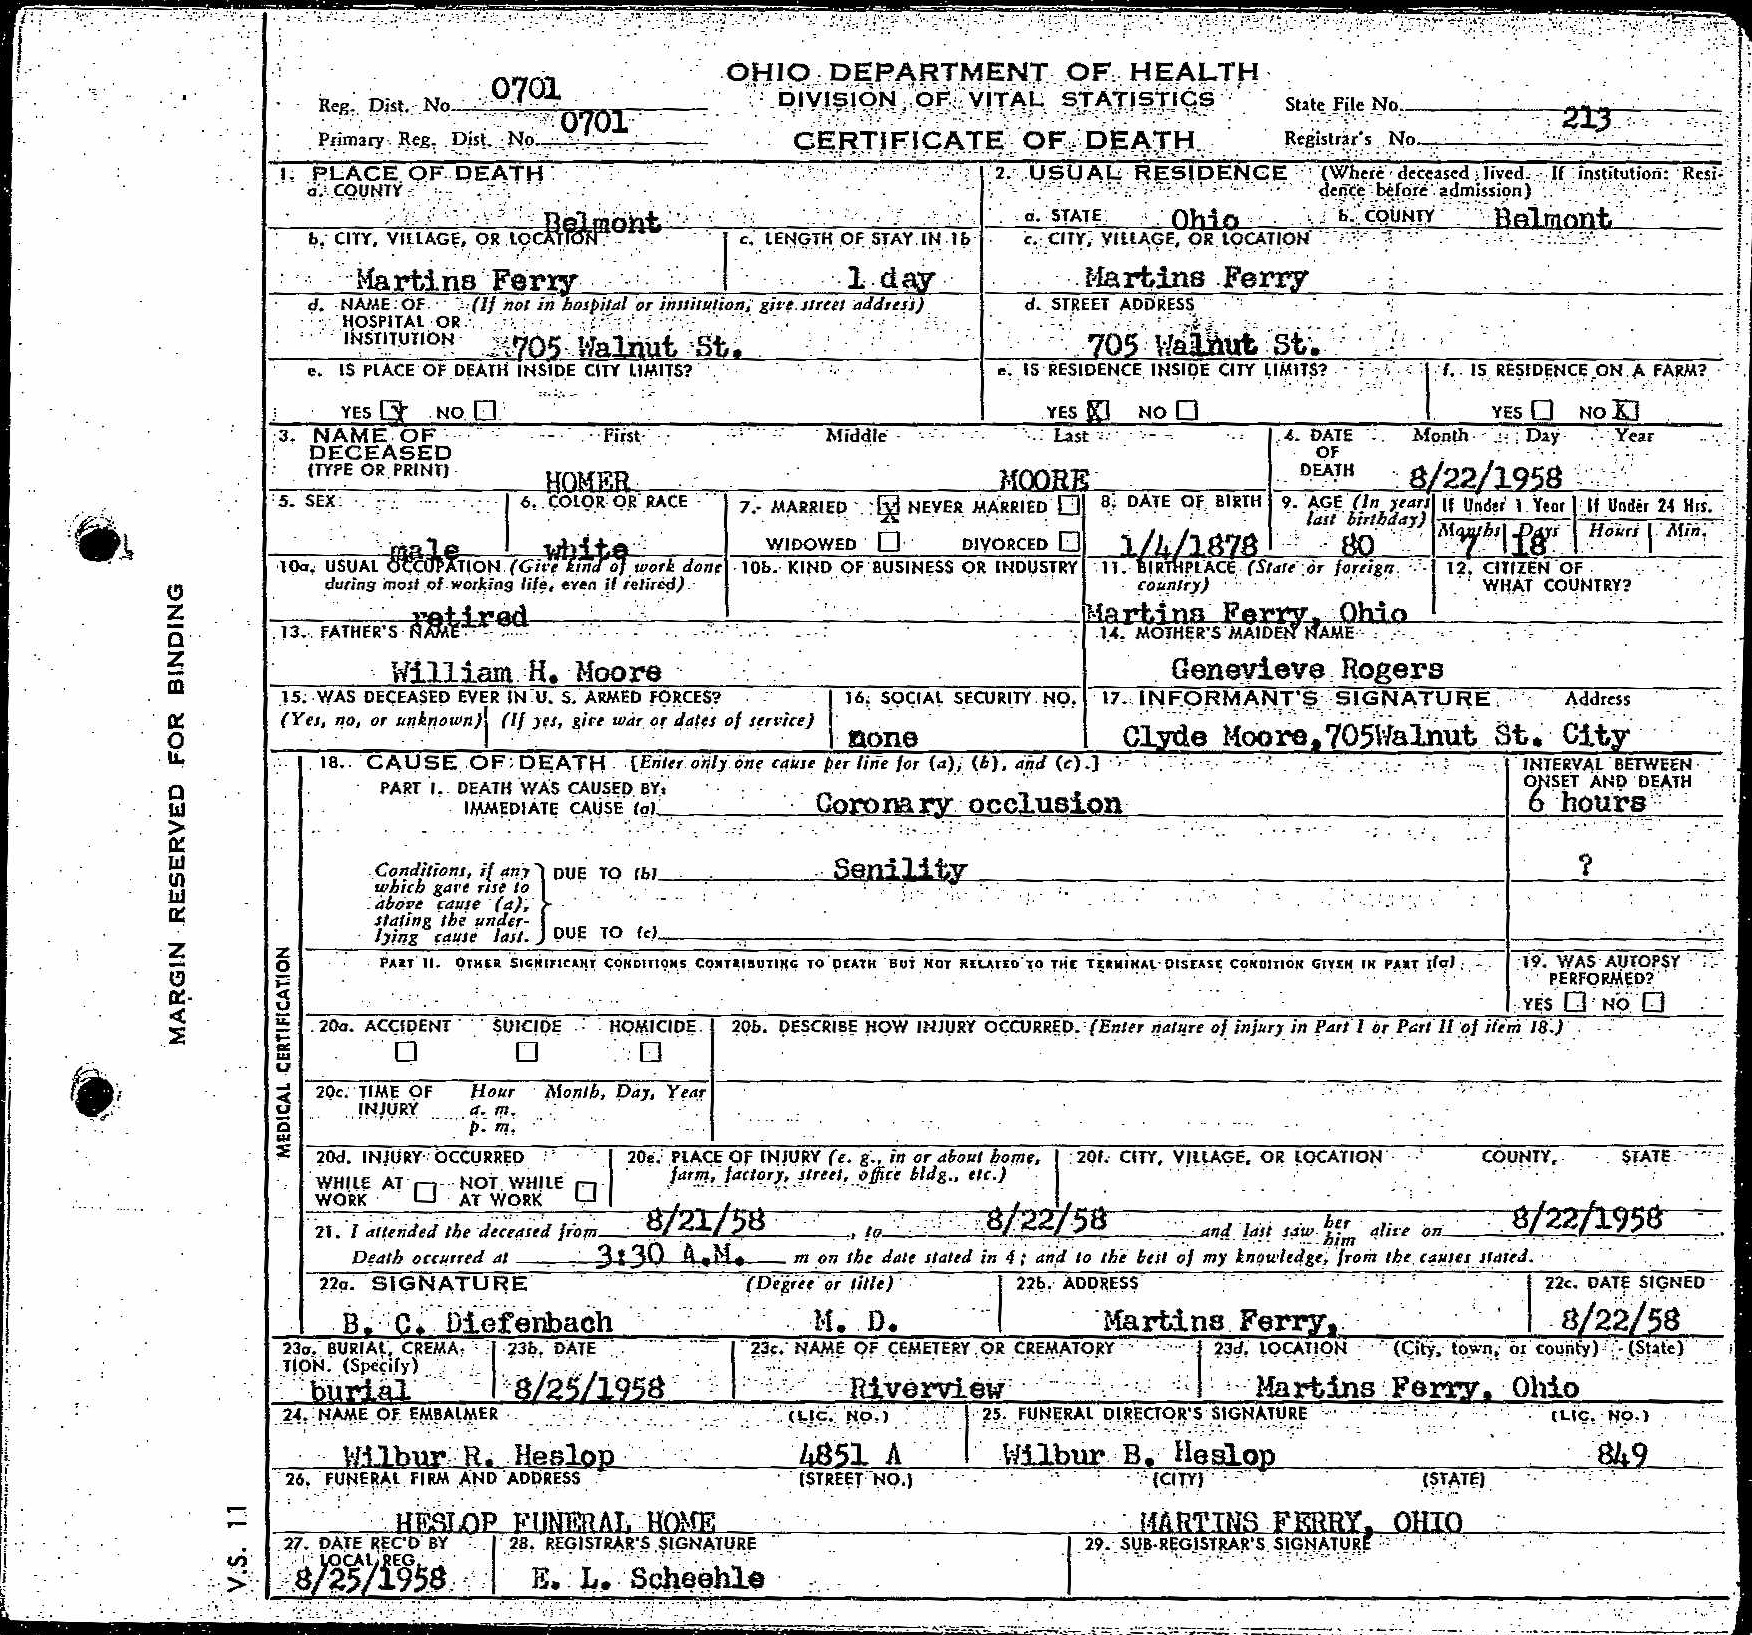 OHIO DEPARTMENT OF HEALTH
DIVISION OF VITAL STATISTICS
CERTIFICATE OF DEATH
Reg. Dist. No. 0701
Primary Reg. Dist. No. 0701
State File No.
Registrar's No. 213
1. PLACE OF DEATH
a. COUNTY
Belmont
b. CITY, VILLAGE, OR LOCATION
Martins Ferry
c. LENGTH OF STAY IN 1b
1 day
d. NAME OF (If not in hospital or institution, give street address)
HOSPITAL OR
INSTITUTION 705 Walnut St.
e. IS PLACE OF DEATH INSIDE CITY LIMITS?
YES X NO
2. USUAL RESIDENCE (Where deceased lived. If institution: Resi-
dence before admission)
a. STATE Ohio b. COUNTY Belmont
c. CITY, VILLAGE, OR LOCATION
Martins Ferry
d. STREET ADDRESS
705 Walnut St.
e. IS RESIDENCE INSIDE CITY LIMITS?
YES X NO
f. IS RESIDENCE ON A FARM?
YES NO X
3. NAME OF DECEASED (TYPE OR PRINT)
First Middle Last
HOMER MOORE
4. DATE OF DEATH Month Day Year
8/22/1958
5. SEX
male
6. COLOR OR RACE
white
7. MARRIED X NEVER MARRIED
WIDOWED DIVORCED
8. DATE OF BIRTH
1/4/1878
9. AGE (In years last birthday)
80
If Under 1 Year If Under 24 Hrs.
Months Days Hours Min.
7 18
10a. USUAL OCCUPATION (Give kind of work done
during most of working life, even if retired)
retired
10b. KIND OF BUSINESS OR INDUSTRY
11. BIRTHPLACE (State or foreign country)
Martins Ferry, Ohio
12. CITIZEN OF WHAT COUNTRY?
13. FATHER'S NAME
William H. Moore
14. MOTHER'S MAIDEN NAME
Genevieve Rogers
15. WAS DECEASED EVER IN U. S. ARMED FORCES?
(Yes, no, or unknown) (If yes, give war or dates of service)
16. SOCIAL SECURITY NO.
none
17. INFORMANT'S SIGNATURE Address
Clyde Moore,705Walnut St. City
MEDICAL CERTIFICATION
18. CAUSE OF DEATH [Enter only one cause per line for (a), (b), and (c).]
INTERVAL BETWEEN ONSET AND DEATH
PART I. DEATH WAS CAUSED BY:
IMMEDIATE CAUSE (a) Coronary occlusion 6 hours
Conditions, if any
which gave rise to
above cause (a),
stating the under-
lying cause last.
DUE TO (b) Senility ?
DUE TO (c)
PART II. OTHER SIGNIFICANT CONDITIONS CONTRIBUTING TO DEATH BUT NOT RELATED TO THE TERMINAL DISEASE CONDITION GIVEN IN PART I(a)
19. WAS AUTOPSY PERFORMED?
YES NO
20a. ACCIDENT SUICIDE HOMICIDE
20b. DESCRIBE HOW INJURY OCCURRED. (Enter nature of injury in Part I or Part II of item 18.)
20c. TIME OF INJURY Hour Month, Day, Year
a. m.
p. m.
20d. INJURY OCCURRED
WHILE AT WORK NOT WHILE AT WORK
20e. PLACE OF INJURY (e. g., in or about home,
farm, factory, street, office bldg., etc.)
20f. CITY, VILLAGE, OR LOCATION COUNTY, STATE
21. I attended the deceased from 8/21/58, to 8/22/58 and last saw her him alive on 8/22/1958.
Death occurred at 3:30 A.M. m on the date stated in 4; and to the best of my knowledge, from the causes stated.
22a. SIGNATURE (Degree or title)
B. C. Diefenbach M. D.
22b. ADDRESS
Martins Ferry,
22c. DATE SIGNED
8/22/58
23a. BURIAL, CREMA-
TION. (Specify)
burial
23b. DATE
8/25/1958
23c. NAME OF CEMETERY OR CREMATORY
Riverview
23d. LOCATION (City, town, or county) (State)
Martins Ferry, Ohio
24. NAME OF EMBALMER (LIC. NO.)
Wilbur R. Heslop 4851 A
25. FUNERAL DIRECTOR'S SIGNATURE (LIC. NO.)
Wilbur B. Heslop 849
26. FUNERAL FIRM AND ADDRESS (STREET NO.) (CITY) (STATE)
HESLOP FUNERAL HOME MARTINS FERRY, OHIO
27. DATE REC'D BY LOCAL REG.
8/25/1958
28. REGISTRAR'S SIGNATURE
E. L. Scheehle
29. SUB-REGISTRAR'S SIGNATURE
MARGIN RESERVED FOR BINDING
V.S. 11